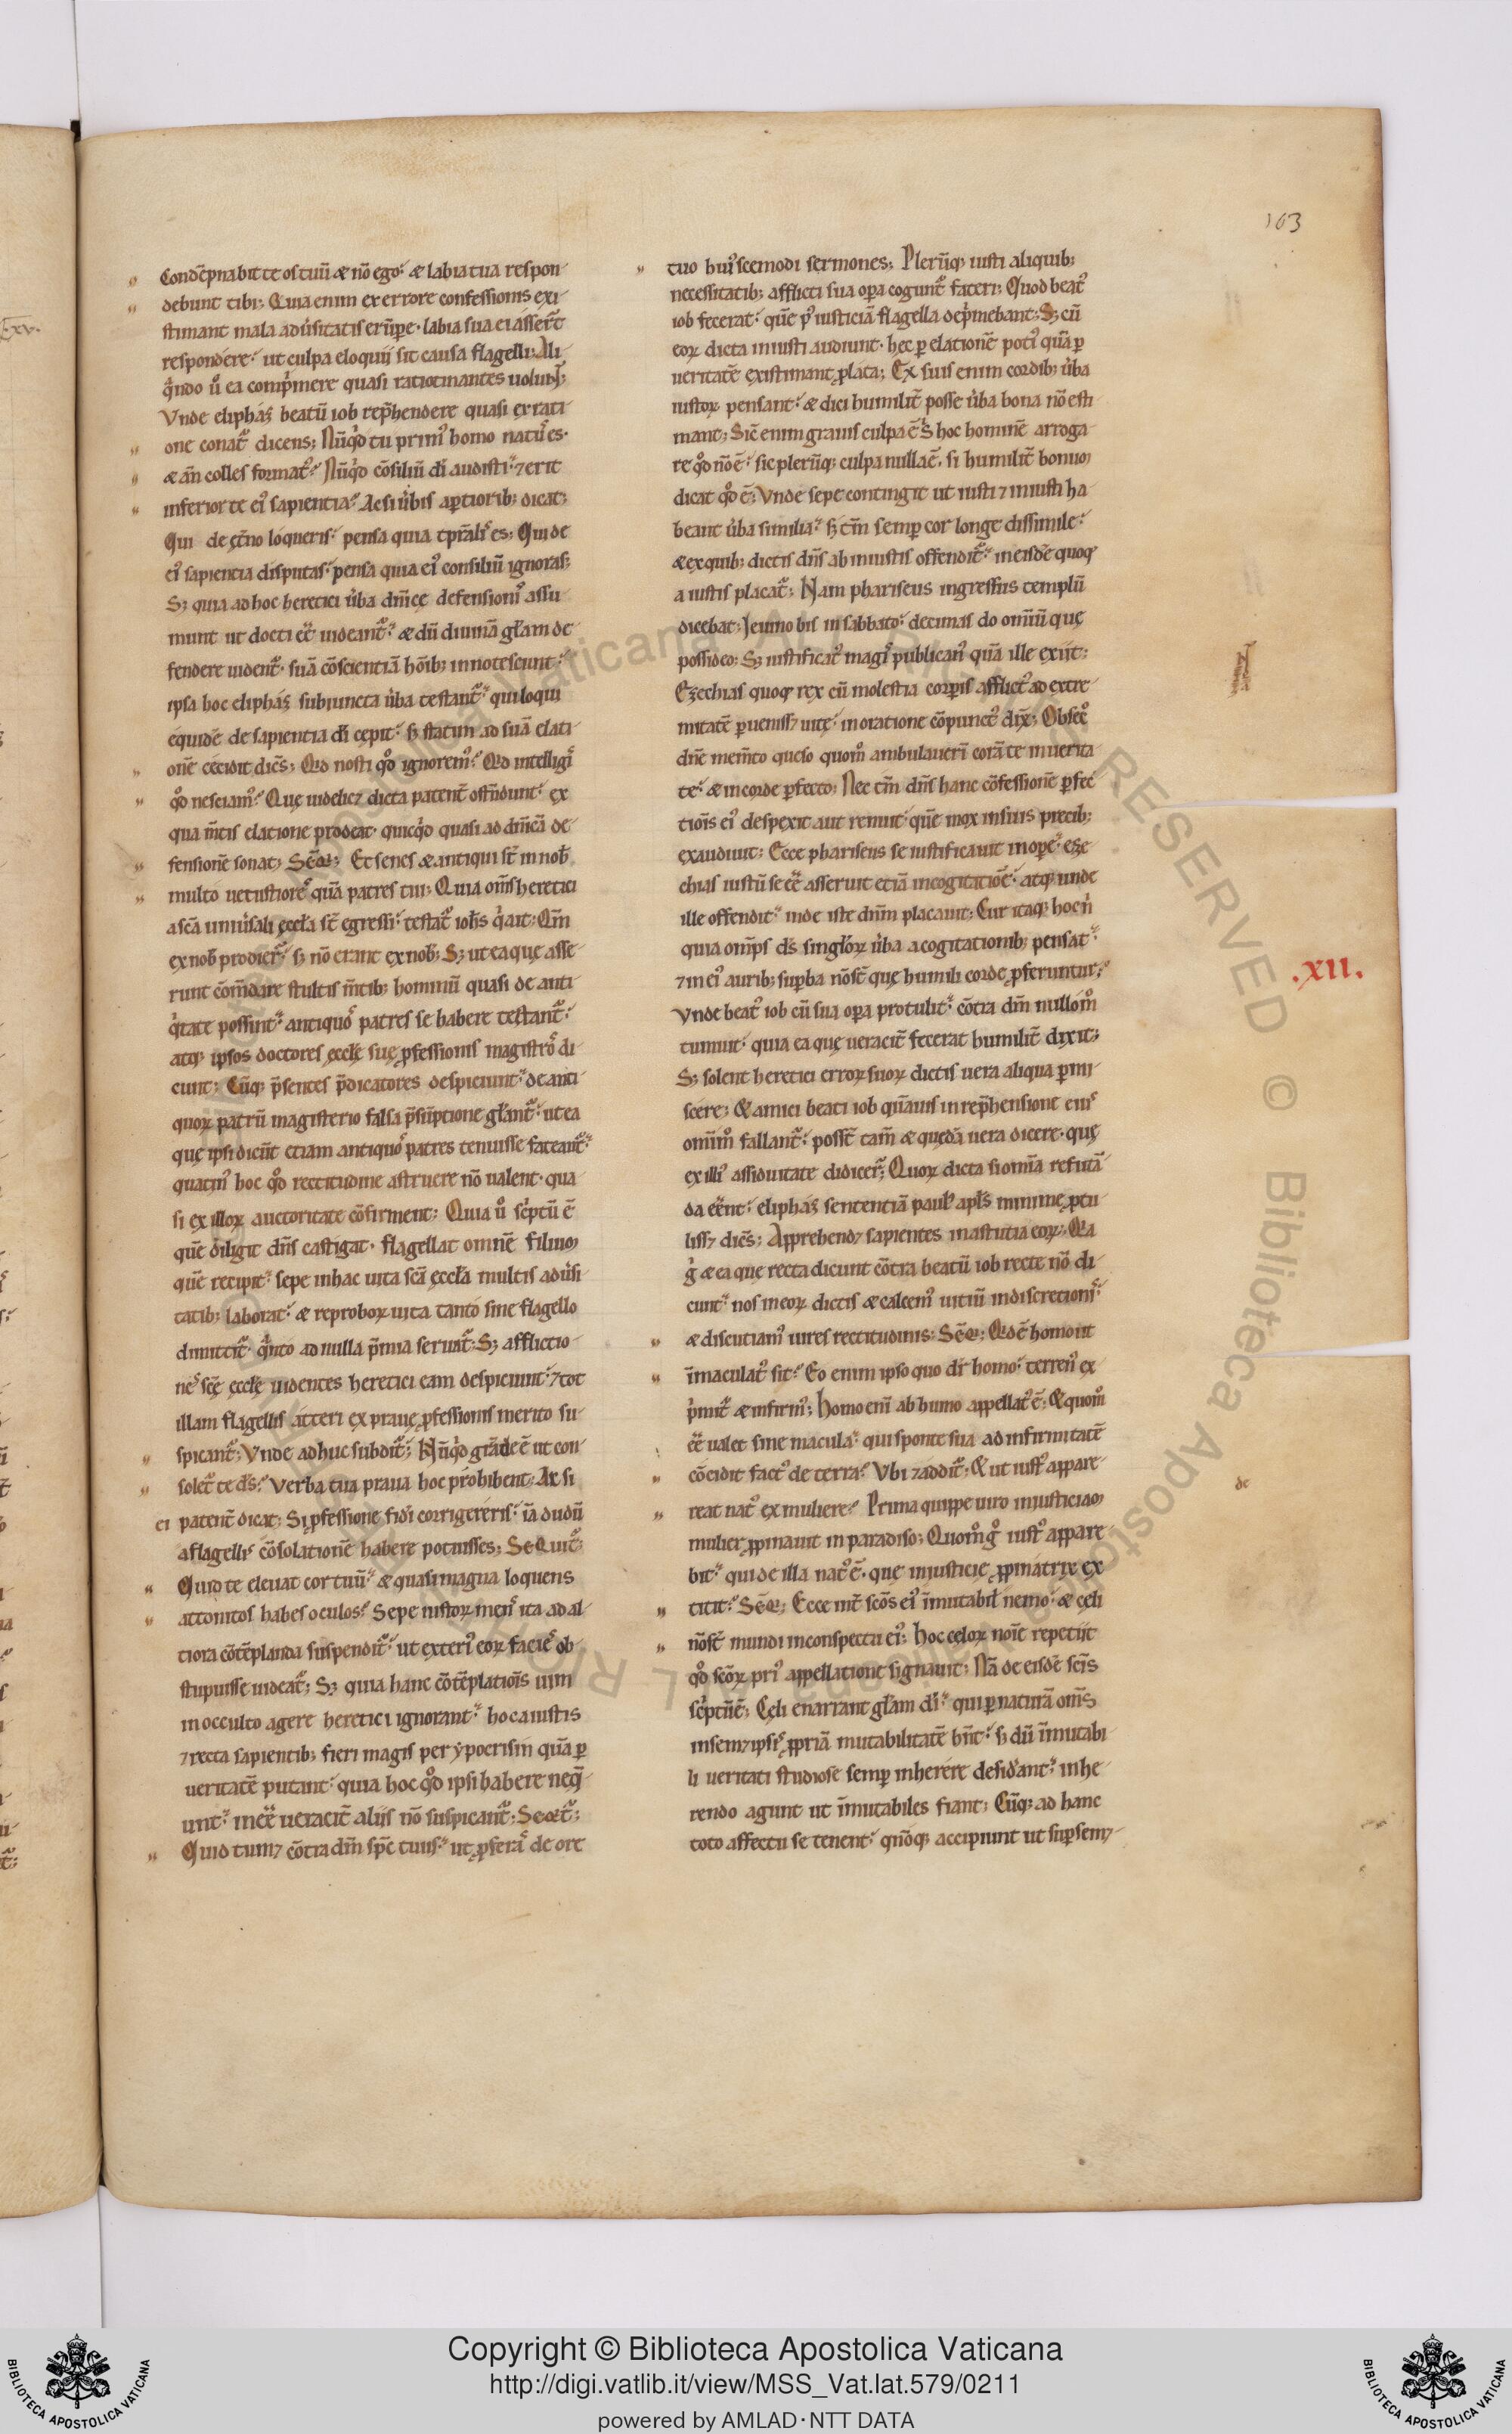 103
Condēpnabit te os tuū & nō ego· & labia tua respon
debunt tibi; Quia enim ex errore confessionis exi
stimant mala adúsitatis erūpe· labia sua ei asser̄t
respondere· ut culpa eloquii sit causa flagelli; Ali
qⁱndo ů ea compⁱmere quasi ratiotinantes uolunt;
Vnde eliphaz beatū iob rep̄hendere quasi ex rati
one conat᷑ dicens; Nūqⁱd tu primꝰ homo natꝰ es·
& an̄ colles formatꝰ? Nūqⁱd cōsiliū di audisti· ⁊ erit
inferior te eiꝰ sapientia? Ac si úbis aꝑtiorib; dicat;
Qui de et̄no loqueris· pensa quia tꝑalis es; Qui de
eiꝰ sapientia disputas· pensa quia eiꝰ consiliū ignoras;
S; quia ad hoc heretici úba dn̄icę defensionis assu
munt ut docti ee᷑ uideant᷑· & dū diuinā gl̄am de
fendere uident᷑· suā cōscientiā hōib; innotescunt·
ipsa hoc eliphaz subiuncta úba testant᷑· qui loqui
equidē de sapientia di cępit· s; statim ad suā elati
onē cecidit dic̄s; Qⁱd nosti qd̊ ignoremꝰ? Qⁱd intelligiᷤ
qd̊ nesciamꝰ? Que uidelicꝫ dicta patent̄ ostn̄dunt· ex
qua m̄tis elatione prodeat· quicqⁱd quasi ad dn̄icā de
fensionē sonat; Seq̄; Et senes & antiqui st̄ in nob̄
multo uetustioreᷤ quā patres tui; Quia om̄s heretici
a sc̄a uniúsali eccl̄a st̄ egressi· testat᷑ ioh̄s qⁱ ait; Qm̄
ex nob̄ prodier̄· s; nō erant ex nob̄; S; ut ea quę asse
runt cōm̄dare stultis m̄tib; hominū quasi de anti
qⁱtate possint· antiquoᷤ patres se habere testant᷑·
atq; ipsos doctores eccl̄e suę ꝓfessionis magistroᷤ di
cunt; Cūq; p̄sentes p̄dicatores despiciunt· de anti
quoꝝ patrū magisterio falsa p̄sūptione gl̄ant᷑· ut ea
quę ipsi dicūt etiam antiquoᷤ patres tenuisse fateant᷑·
quatinꝰ hoc qd̊ rectitudine astruere nō ualent· qua
si ex illoꝝ auctoritate cōfirment; Quia ů scⁱptū ē
quē diligit dn̄s castigat· flagellat omnē filium
quē recipit· sepe in hac uita sc̄a eccl̄a multis adúsi
tatib; laborat· & reproboꝝ uita tanto sine flagello
dimittit᷑· qⁱnto ad nulla p̄mia seruat᷑; S; afflictio
neᷤ sc̄ę eccl̄e uidentes heretici eam despiciunt· ⁊ tot
illam flagellis atteri ex prauę ꝓfessionis merito su
spicant᷑; Vnde adhuc subdit᷑; Nūqⁱd grāde ē ut con
solet᷑ te d̄s? Verba tua praua hoc prohibent; Ac si
ei patent̄ dicat; Si ꝓfessione fidei corrigereris· iā dudū
a flagellis cōsolationē habere potuisses; Sequit᷑;
Quid te eleuat cor tuū· & quasi magna loquens
attonitos habes oculos? Sepe iustoꝝ menᷤ ita ad al
tiora cōtēplanda suspendit᷑· ut exteriꝰ eoꝝ facieᷤ ob
stupuisse uideat᷑; S; quia hanc cōtēplatiōis uim
in occulto agere heretici ignorant· hoc a iustis
⁊ recta sapientib; fieri magis per ypocrisin quā ꝑ
ueritatē putant· quia hoc qd̊ ipsi habere neq̄
unt· inee᷑ ueracit̄ aliis nō suspicant᷑; Seqt᷑;
Quid tumꝫ cōtra dm̄ sp̄c tuus· ut ꝓferaᷤ de ore
tuo huiꝰscemodi sermones; Plerūq; iusti aliquib;
necessitatib; afflicti sua oꝑa cogunt᷑ fateri; Quod beatꝰ
iob fecerat· quē pꝰ iusticiā flagella depⁱmebant; S; cū
eoꝝ dicta iniusti audiunt· hęc ꝑ elationē potiꝰ quā ꝑ
ueritatē existimant ꝓlata; Ex suis enim cordib; úba
iustoꝝ pensant· & dici humilit̄ posse úba bona nō esti
mant; Sic̄ enim grauis culpa ē s; hoc hominē arroga
re qd̊ nō ē· sic plerūq; culpa nulla ē· si humilit̄ bonum
dicat qd̊ ē; Vnde sepe contingit ut iusti ⁊ iniusti ha
beant úba similia· s; tm̄ semꝑ cor longe dissimile·
& ex quib; dictis dn̄s ab iniustis offendit᷑· in eisdē quoq;
a iustis placat᷑; Nam phariseus ingressus templū
dicebat; Ieiuno bis in sabbato· decimas do omniū quę
possideo; S; iustificatꝰ magiᷤ publicanꝰ quā ille exiit;
Ezechias quoq; rex cū molestia corꝑis afflictꝰ ad extre
mitatē ꝑuenissꝫ uitę· in oratione cōpunctꝰ dix̄; Obsec̊
dn̄e mem̄to queso quom̊ ambulaueri coram te in uerita
te· & in corde ꝑfecto; Nec tm̄ dn̄s hanc cōfessionē ꝑfec
tiōis eiꝰ despexit aut renuit· quē mox in suis precib;
exaudiuit; Ecce phariseus se iustificauit in oꝑe· eze
chias iustū se ee᷑ asseruit etiā in cogitatiōe· atq; unde
ille offendit· inde iste dm̄ placauit; Cur itaq; hoc nⁱ
quia omp̄s d̄s singl̄oꝝ úba a cogitationib; pensat·
⁊ in eiꝰ aurib; suꝑba nōst̄ quę humili corde ꝓferuntur·
Vnde beatꝰ iob cū sua oꝑa protulit· cōtra dm̄ nullom̊
tumuit· quia ea quę ueracit̄ fecerat humilit̄ dixit;
S; solent heretici erroꝝ suoꝝ dictis uera aliqua ꝑmi
scere; & amici beati iob quāuis in rep̄hensione eius
omim̊ fallant᷑· posst̄ tam̄ & quędā uera dicere· quę
ex illiꝰ assiduitate didicer̄; Quoꝝ dicta si omīa refutā
da ee᷑nt· eliphaz sententiā paul̄ apl̄s minime ꝓtu
lissꝫ dic̄s; Apprehendꝫ sapientes in astutia eoꝝ; Qⁱa
gⁱ & ea que recta dicunt cōtra beatū iob recte nō di
cunt· nos in eoꝝ dictis & calcemꝰ uitiū indiscretionis·
& discutiamꝰ uires rectitudinis; Seq̄; Qⁱd ē homo ut
īmaculatꝰ sit? Eo enim ipso quo dr̄ homo· terrenꝰ ex
pⁱmit᷑ & infirmꝰ; Homo eni ab humo appellatꝰ ē; & quom̊
ee᷑ ualet sine macula· qui sponte sua ad infirmitatē
cōcidit factꝰ de terra? Vbi ⁊ addit᷑; & ut iustꝰ appare
reat natꝰ ex muliere? Prima quippe uiro iniusticiam
mulier ꝓpinauit in paradiso; Quom̊ g̊ iustꝰ appare
bit· qui de illa natꝰ ē· que iniusticie ꝓpinatrix ex
titit? Seq̄; Ecce int̄ sc̄os eiꝰ īmutabil̄ nemo· & cęli
nōst̄ mundi in conspectu eiꝰ; Hoc cęloꝝ noīe repetiit
qd̊ sc̄oꝝ priꝰ appellatione signauit; Nā de eisdē sc̄is
scⁱptū ē; Cęli enarrant gl̄am di· qui ꝑ naturā om̄s
in semꝫipsis ꝓpriā mutabilitatē hn̄t· s; dū īmutabi
li ueritati studiose semꝑ inherere desiďant· inhe
rendo agunt ut īmutabiles fiant; Cūq; ad hanc
toto affectu se tenent· qn̄oq; accipiunt ut suꝑ semꝫ
.XII.
de
Copyright © Biblioteca Apostolica Vaticana
http://digi.vatlib.it/view/MSS_Vat.lat.579/0211
powered by AMLAD·NTT DATA
BIBLIOTECA APOSTOLICA VATICANA
BIBLIOTECA APOSTOLICA VATICANA